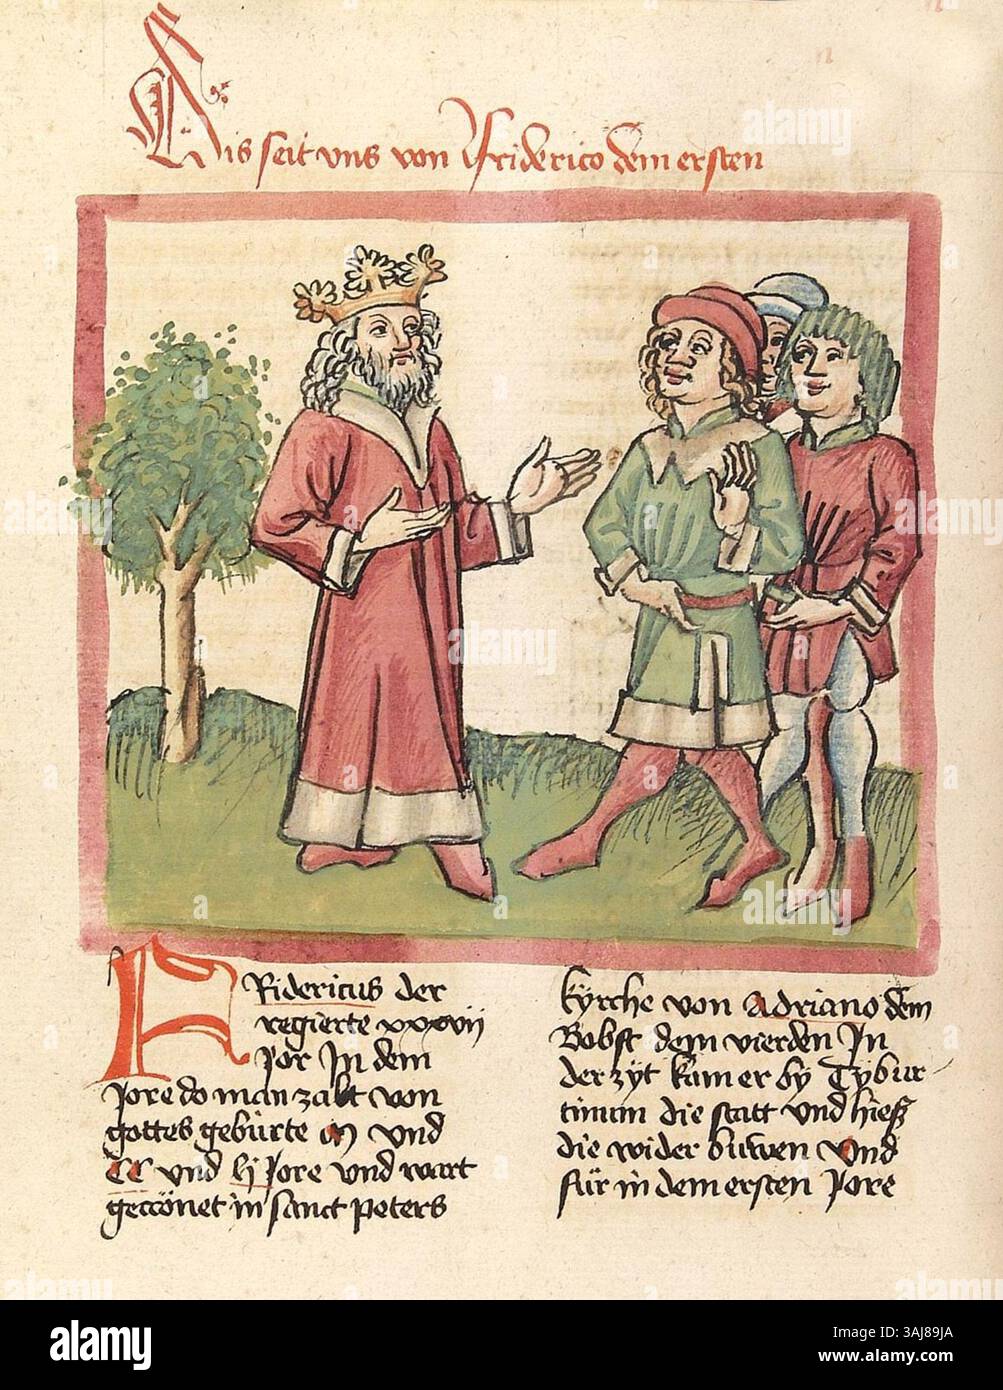 Dis seit vns von Friderico dem ersten
FRidericus der
regierte xxxvij
Jor Jn dem
Jore do man zalt von
gottes gebürte m vnd
CC vnd lij Jore vnd wart
gecrönet in sanct peters
kyrche von Adriano dem
Bobst dem vierden Jn
der zyt kam er by Tybur
tinum die statt vnd hiesz
die wider buwen Vnd
für in dem ersten Jore
alamy
alamy
Image ID: 3AJ89JA
www.alamy.com